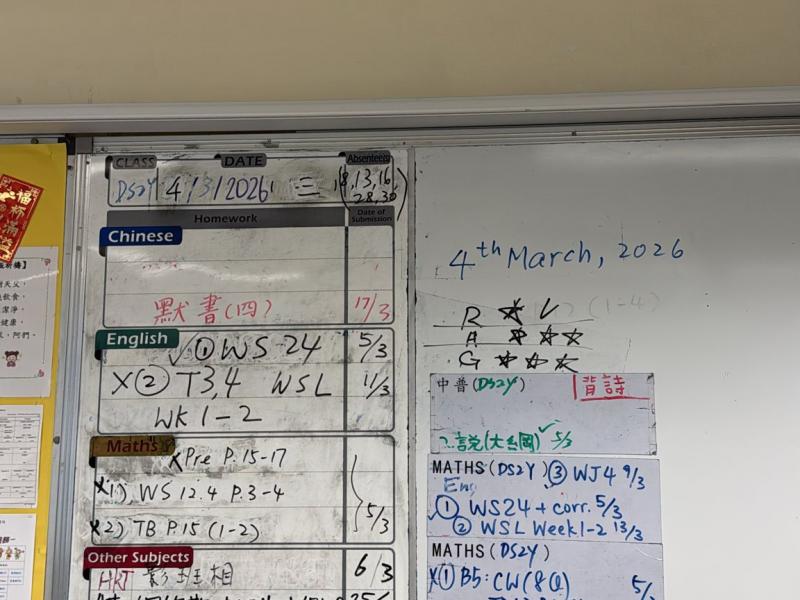 CLASS DATE Absentees
DS2Y 4/3/2026 三 (8,13,16,
28,30)
Homework Date of Submission
Chinese
默書(四) 17/3
English
✓① WS 24 5/3
X② T3,4 WSL 11/3
WK 1-2
Maths
X Pre P.15-17
X1), WS 12.4 P.3-4
X2) TB P.15 (1-2) 5/3
Other Subjects
HKT 影班相 6/3
福杯滿溢
4th March, 2026
(1-4)
R ★ V
A ★ ★ ★
G ★ ★ ★
中普(DS2Y) 背詩
說(大綱)✓ 5/3
MATHS (DS2Y) ③ WJ4 9/3
Eng
① WS24 + corr. 5/3
② WSL Week1-2 13/3
MATHS (DS2Y)
X① B5: CW(8Q) 5/